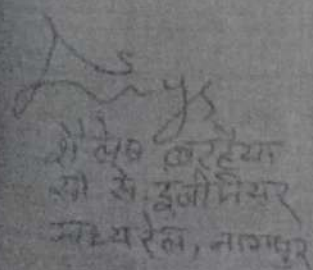 शैलेष बरहैया
सी से. इंजीनियर
मध्य रेल, नागपुर